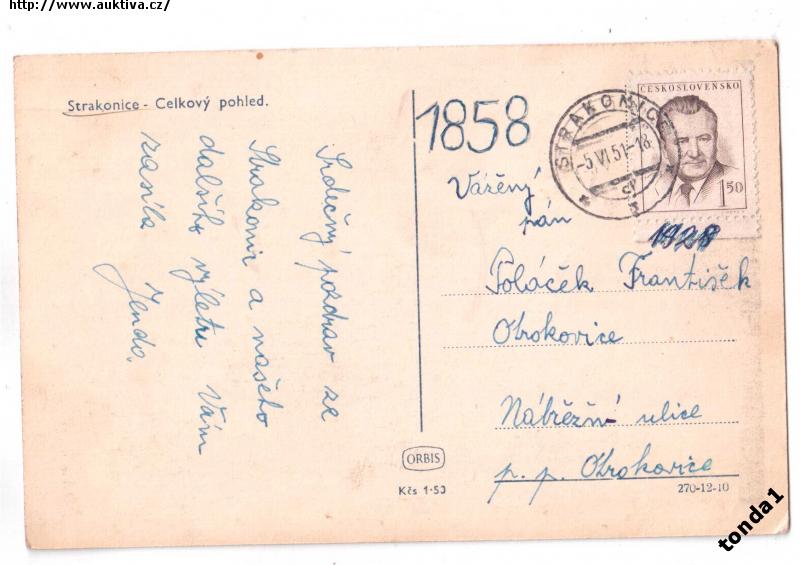 http://www.auktiva.cz/
Strakonice - Celkový pohled.
1858
STRAKONICE
-5.VI.51-18
ČESKOSLOVENSKO
1 50
1928
Srdečný pozdrav ze
Strakonic a našeho
dalšího výletu Vám
zasílá Jenda.
Vážěný
pán
Poláček František
Otrokovice
Nábřěžní ulice
p. p. Otrokovice
ORBIS
Kčs 1·50
270-12-10
tonda1